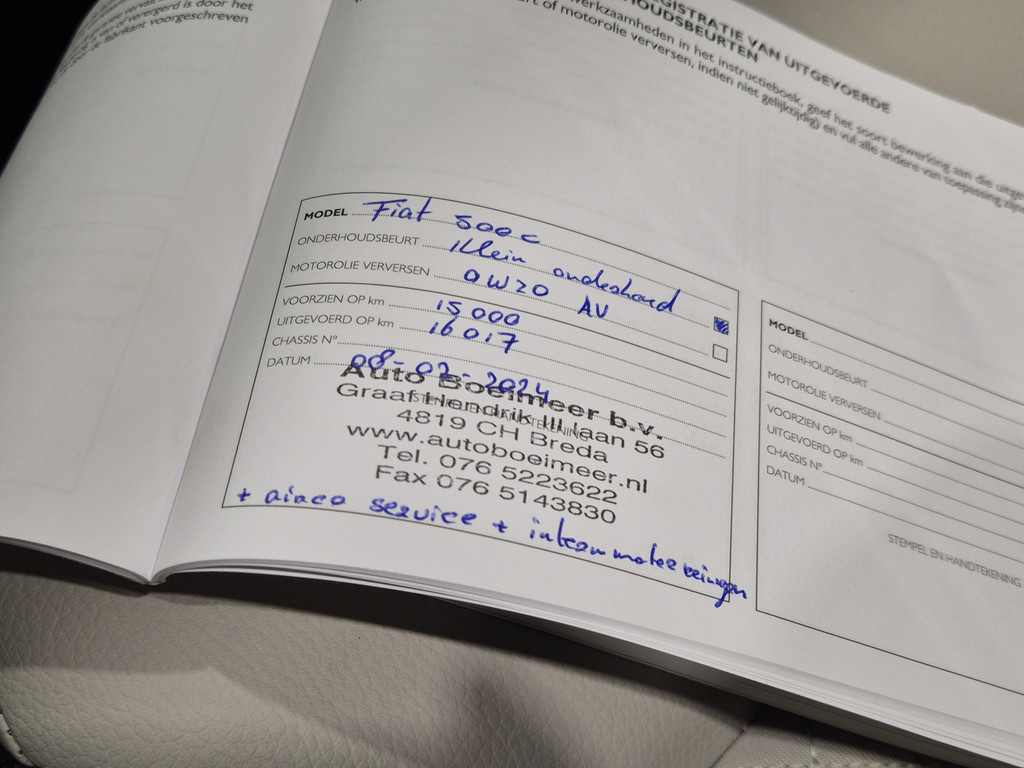 is door het
of verergerd is door het
de fabrikant voorgeschreven
REGISTRATIE VAN UITGEVOERDE
ONDERHOUDSBEURTEN
werkzaamheden in het instructieboek, geef het soort bewerking aan die uitge
of motorolie verversen, indien niet gelijktijdig) en vul alle andere van toepassing zijn
MODEL Fiat 500c
ONDERHOUDSBEURT Klein onderhoud
MOTOROLIE VERVERSEN 0W20 AV
VOORZIEN OP km 15000
UITGEVOERD OP km 16017
CHASSIS N°
DATUM 08-02-2024
STEMPEL EN HANDTEKENING
Auto Boeimeer b.v.
Graaf Hendrik III laan 56
4819 CH Breda
www.autoboeimeer.nl
Tel. 076 5223622
Fax 076 5143830
+ airco service + intern motor reinigen
MODEL
ONDERHOUDSBEURT
MOTOROLIE VERVERSEN
VOORZIEN OP km
UITGEVOERD OP km
CHASSIS N°
DATUM
STEMPEL EN HANDTEKENING